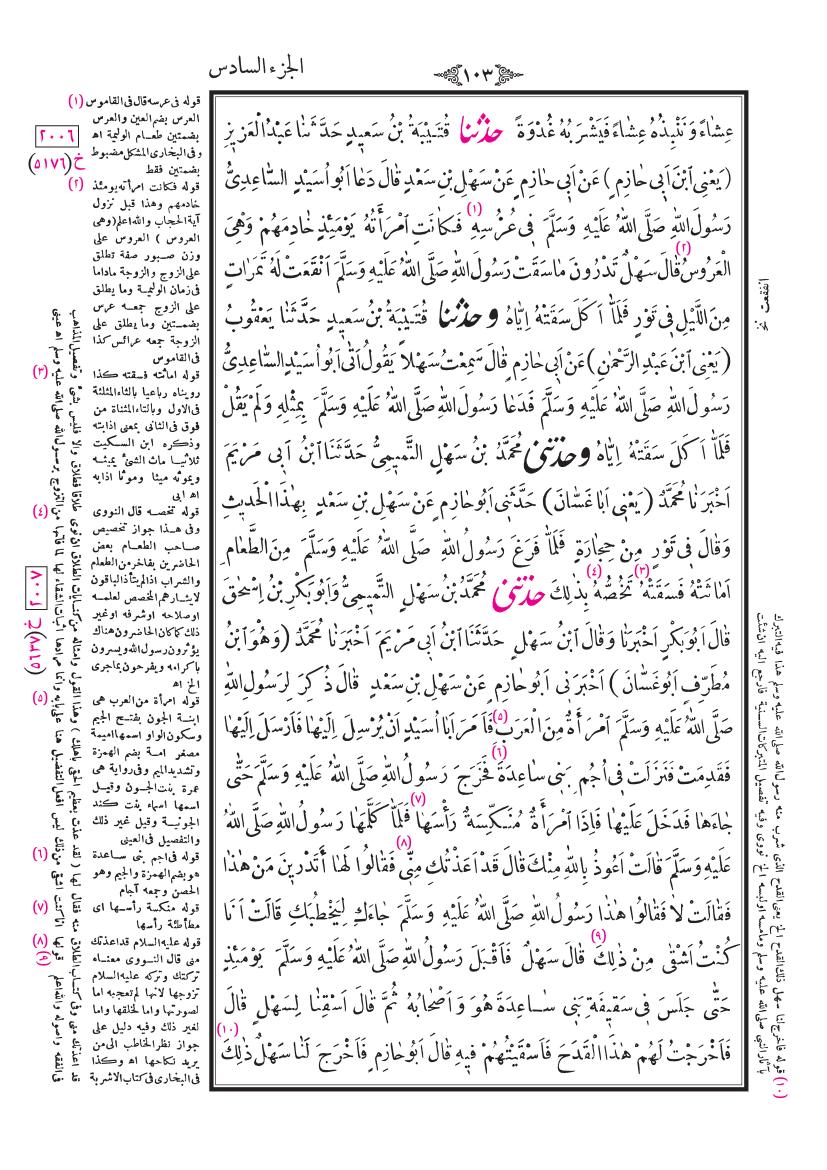 الجزء السادس
١٠٣
عِشَاءً وَنَنْبِذُهُ عِشَاءً فَيَشْرَبُهُ غُدْوَةً حدثنا قُتَيْبَةُ بْنُ سَعِيدٍ حَدَّثَنَا عَبْدُ الْعَزِيزِ
(يَعْنِى ابْنَ اَبِى حَازِمٍ) عَنْ اَبِى حَازِمٍ عَنْ سَهْلِ بْنِ سَعْدٍ قَالَ دَعَا اَبُو اُسَيْدٍ السَّاعِدِىُّ
رَسُولَ اللهِ صَلَّى اللهُ عَلَيْهِ وَسَلَّمَ فِى عُرْسِهِ (١) فَكَانَتِ امْرَأَتُهُ يَوْمَئِذٍ خَادِمَهُمْ وَهْىَ
الْعَرُوسُ (٢) قَالَ سَهْلٌ تَدْرُونَ مَا سَقَتْ رَسُولَ اللهِ صَلَّى اللهُ عَلَيْهِ وَسَلَّمَ اَنْقَعَتْ لَهُ تَمَرَاتٍ
مِنَ اللَّيْلِ فِى تَوْرٍ فَلَمَّا اَكَلَ سَقَتْهُ اِيَّاهُ وحدثنا قُتَيْبَةُ بْنُ سَعِيدٍ حَدَّثَنَا يَعْقُوبُ
(يَعْنِى ابْنَ عَبْدِ الرَّحْمٰنِ) عَنْ اَبِى حَازِمٍ قَالَ سَمِعْتُ سَهْلاً يَقُولُ اَتَى اَبُو اُسَيْدٍ السَّاعِدِىُّ
رَسُولَ اللهِ صَلَّى اللهُ عَلَيْهِ وَسَلَّمَ فَدَعَا رَسُولَ اللهِ صَلَّى اللهُ عَلَيْهِ وَسَلَّمَ بِمِثْلِهِ وَلَمْ يَقُلْ
فَلَمَّا اَكَلَ سَقَتْهُ اِيَّاهُ وحدثنى مُحَمَّدُ بْنُ سَهْلٍ التَّمِيمِىُّ حَدَّثَنَا ابْنُ اَبِى مَرْيَمَ
اَخْبَرَنَا مُحَمَّدٌ (يَعْنِى اَبَا غَسَّانَ) حَدَّثَنِى اَبُو حَازِمٍ عَنْ سَهْلِ بْنِ سَعْدٍ بِهٰذَا الْحَدِيثِ
وَقَالَ فِى تَوْرٍ مِنْ حِجَارَةٍ فَلَمَّا فَرَغَ رَسُولُ اللهِ صَلَّى اللهُ عَلَيْهِ وَسَلَّمَ مِنَ الطَّعَامِ
اَمَاثَتْهُ فَسَقَتْهُ (٣) تَخُصُّهُ (٤) بِذٰلِكَ حدثنى مُحَمَّدُ بْنُ سَهْلٍ التَّمِيمِىُّ وَاَبُو بَكْرِ بْنُ اِسْحٰقَ
قَالَ اَبُو بَكْرٍ اَخْبَرَنَا وَقَالَ ابْنُ سَهْلٍ حَدَّثَنَا ابْنُ اَبِى مَرْيَمَ اَخْبَرَنَا مُحَمَّدٌ (وَهُوَ ابْنُ
مُطَرِّفٍ اَبُو غَسَّانَ) اَخْبَرَنِى اَبُو حَازِمٍ عَنْ سَهْلِ بْنِ سَعْدٍ قَالَ ذُكِرَ لِرَسُولِ اللهِ
صَلَّى اللهُ عَلَيْهِ وَسَلَّمَ امْرَأَةٌ مِنَ الْعَرَبِ (٥) فَاَمَرَ اَبَا اُسَيْدٍ اَنْ يُرْسِلَ اِلَيْهَا فَاَرْسَلَ اِلَيْهَا
فَقَدِمَتْ فَنَزَلَتْ فِى اُجُمِ بَنِى سَاعِدَةَ (٦) فَخَرَجَ رَسُولُ اللهِ صَلَّى اللهُ عَلَيْهِ وَسَلَّمَ حَتّٰى
جَاءَهَا فَدَخَلَ عَلَيْهَا فَاِذَا امْرَأَةٌ مُنَكِّسَةٌ رَأْسَهَا (٧) فَلَمَّا كَلَّمَهَا رَسُولُ اللهِ صَلَّى اللهُ
عَلَيْهِ وَسَلَّمَ قَالَتْ اَعُوذُ بِاللهِ مِنْكَ قَالَ قَدْ اَعَذْتُكِ مِنِّى (٨) فَقَالُوا لَهَا أَتَدْرِينَ مَنْ هٰذَا
فَقَالَتْ لَا فَقَالُوا هٰذَا رَسُولُ اللهِ صَلَّى اللهُ عَلَيْهِ وَسَلَّمَ جَاءَكِ لِيَخْطُبَكِ قَالَتْ اَنَا
كُنْتُ اَشْقٰى مِنْ ذٰلِكَ (٩) قَالَ سَهْلٌ فَاَقْبَلَ رَسُولُ اللهِ صَلَّى اللهُ عَلَيْهِ وَسَلَّمَ يَوْمَئِذٍ
حَتّٰى جَلَسَ فِى سَقِيفَةِ بَنِى سَاعِدَةَ هُوَ وَ اَصْحَابُهُ ثُمَّ قَالَ اسْقِنَا لِسَهْلٍ قَالَ
فَاَخْرَجْتُ لَهُمْ هٰذَا الْقَدَحَ فَاَسْقَيْتُهُمْ فِيهِ قَالَ اَبُو حَازِمٍ فَاَخْرَجَ لَنَا سَهْلٌ ذٰلِكَ (١٠)
(١) قوله فى عرسه قال فى القاموس
العرس بضم العين والعرس
بضمتين طعام الوليمة اه
وفى البخارى المشكل مضبوط
بضمتين فقط
(٢) قوله فكانت امرأته يومئذ
خادمهم وهذا قبل نزول
آية الحجاب والله اعلم (وهى
العروس) العروس على
وزن صبور صفة تطلق
على الزوج والزوجة ماداما
فى زمان الوليمة وما يطلق
على الزوج جمعه عرس
بضمتين وما يطلق على
الزوجة جمعه عرائس كذا
فى القاموس
(٣) قوله اماثته فسقته كذا
رويناه رباعيا بالثاء المثلثة
فى الاول وبالتاء المثناة من
فوق فى الثانى بمعنى اذابته
وذكره ابن السكيت
ثلاثيا ماث الشئ يميثه
ويموثه ميثا وموثا اذابه
اه ابى
(٤) قوله تخصه قال النووى
وفى هذا جواز تخصيص
صاحب الطعام بعض
الحاضرين بفاخر من الطعام
والشراب اذا لم يتأذ الباقون
لايثارهم المخصص لعلمه
او صلاحه او شرفه او غير
ذلك كما كان الحاضرون هناك
يؤثرون رسول الله ويسرون
باكرامه ويفرحون بما جرى
الخ اه
(٥) قوله امرأة من العرب هى
ابنة الجون بفتح الجيم
وسكون الواو اسمها اميمة
مصغر امة بضم الهمزة
وتشديد الميم وفى رواية هى
عمرة بنت الجون وقيل
اسمها اسماء بنت كند
الجونية وقيل غير ذلك
والتفصيل فى العينى
(٦) قوله فى اجم بنى ساعدة
هو بضم الهمزة والجيم وهو
الحصن وجمعه آجام
(٧) قوله منكسة رأسها اى
مطأطئة رأسها
(٨) قوله عليه السلام قد اعذتك
منى قال النووى معناه
تركتك وتركه عليه السلام
تزوجها لانها لم تعجبه اما
لصورتها واما لخلقها واما
لغير ذلك وفيه دليل على
جواز نظر الخاطب الى من
يريد نكاحها اه وكذا
فى البخارى فى كتاب الاشربة
(٩)
٢٠٠٦
خ (٥١٧٦)
٢٠٠٧
خ (٥٦٣٧)
(١٠) قوله فاخرج لنا سهل ذلك القدح الخ يعنى القدح الذى شرب منه رسول الله صلى الله عليه وسلم هذا فيه التبرك
بآثار النبى صلى الله عليه وسلم وما مسه او لبسه الخ نووى وفيه تفصيل المتبركات السنية فارجع اليه ان شئت